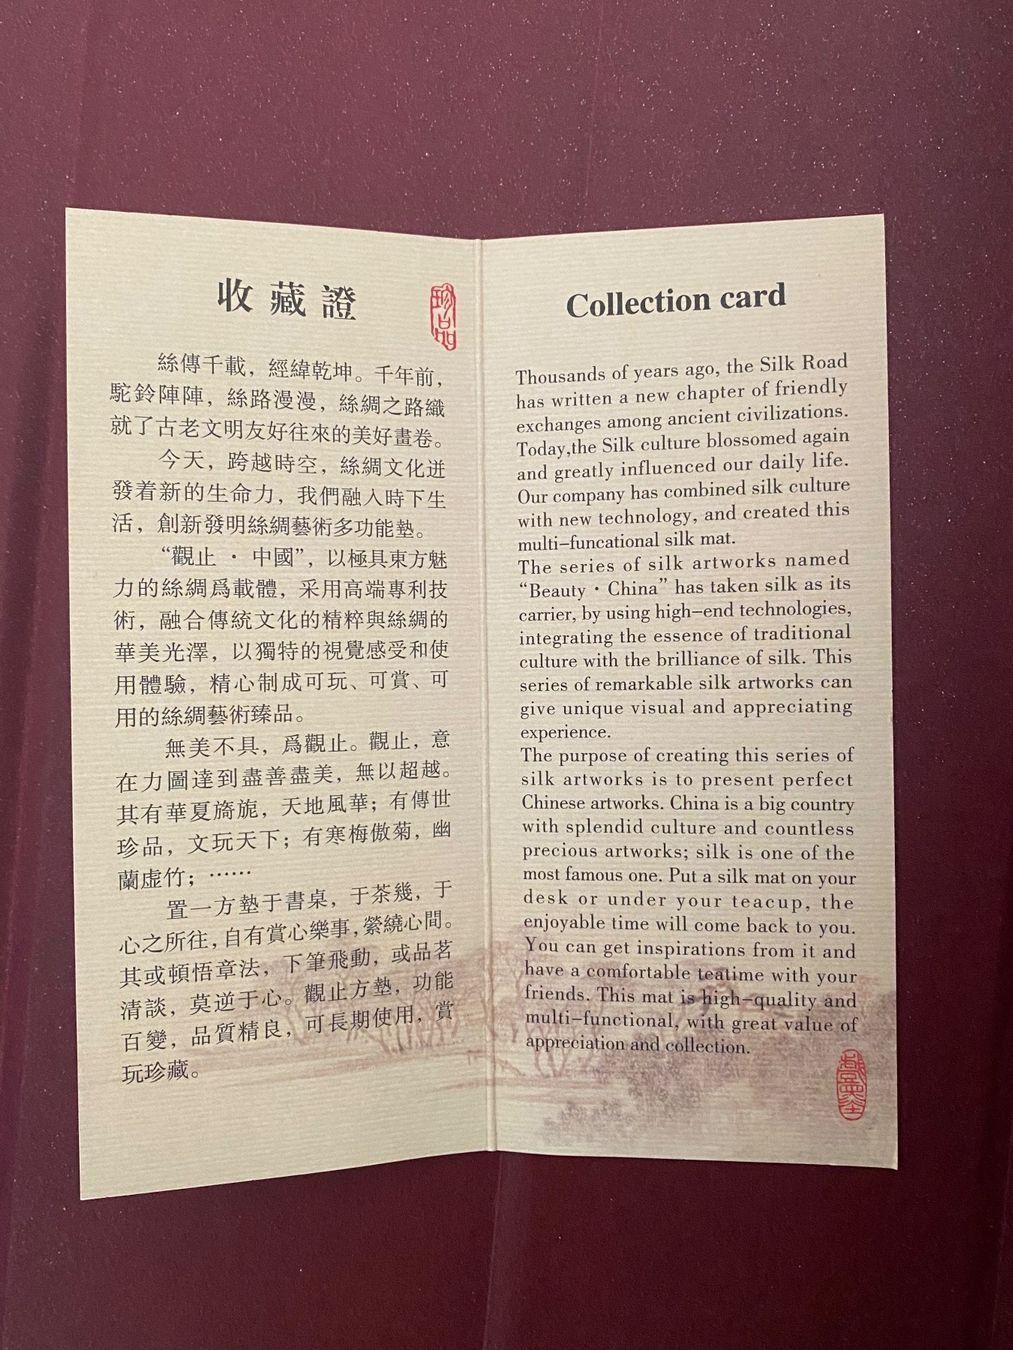 收藏證
珍品
絲傳千載，經緯乾坤。千年前，
駝鈴陣陣，絲路漫漫，絲綢之路織
就了古老文明友好往來的美好畫卷。
今天，跨越時空，絲綢文化迸
發着新的生命力，我們融入時下生
活，創新發明絲綢藝術多功能墊。
“觀止·中國”，以極具東方魅
力的絲綢爲載體，采用高端專利技
術，融合傳統文化的精粹與絲綢的
華美光澤，以獨特的視覺感受和使
用體驗，精心制成可玩、可賞、可
用的絲綢藝術臻品。
無美不具，爲觀止。觀止，意
在力圖達到盡善盡美，無以超越。
其有華夏旖旎，天地風華；有傳世
珍品，文玩天下；有寒梅傲菊，幽
蘭虛竹；……
置一方墊于書桌，于茶幾，于
心之所往，自有賞心樂事，縈繞心間。
其或頓悟章法，下筆飛動，或品茗
清談，莫逆于心。觀止方墊，功能
百變，品質精良，可長期使用，賞
玩珍藏。
Collection card
Thousands of years ago, the Silk Road
has written a new chapter of friendly
exchanges among ancient civilizations.
Today,the Silk culture blossomed again
and greatly influenced our daily life.
Our company has combined silk culture
with new technology, and created this
multi-funcational silk mat.
The series of silk artworks named
“Beauty·China” has taken silk as its
carrier, by using high-end technologies,
integrating the essence of traditional
culture with the brilliance of silk. This
series of remarkable silk artworks can
give unique visual and appreciating
experience.
The purpose of creating this series of
silk artworks is to present perfect
Chinese artworks. China is a big country
with splendid culture and countless
precious artworks; silk is one of the
most famous one. Put a silk mat on your
desk or under your teacup, the
enjoyable time will come back to you.
You can get inspirations from it and
have a comfortable teatime with your
friends. This mat is high-quality and
multi-functional, with great value of
appreciation and collection.